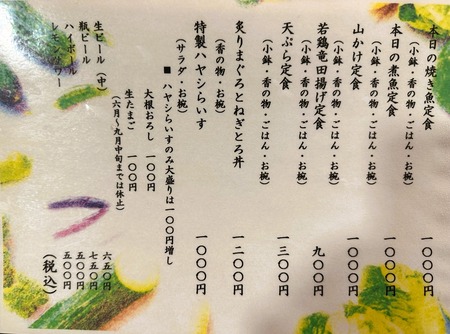 本日の焼き魚定食 一〇〇〇円
(小鉢・香の物・ごはん・お椀)
本日の煮魚定食 一〇〇〇円
(小鉢・香の物・ごはん・お椀)
山かけ定食 一〇〇〇円
(小鉢・香の物・ごはん・お椀)
若鶏竜田揚げ定食 九〇〇円
(小鉢・香の物・ごはん・お椀)
天ぷら定食 一三〇〇円
(小鉢・香の物・ごはん・お椀)
炙りまぐろとねぎとろ丼 一二〇〇円
(香の物・お椀)
特製ハヤシらいす 一〇〇〇円
(サラダ・お椀)
■ ハヤシらいすのみ大盛りは一〇〇円増し
大根おろし 一〇〇円
生たまご 一〇〇円
(六月~九月中旬までは休止)
生ビール(中) 六五〇円
瓶ビール 七五〇円
ハイボール 五〇〇円
レモンサワー 五〇〇円
(税込)